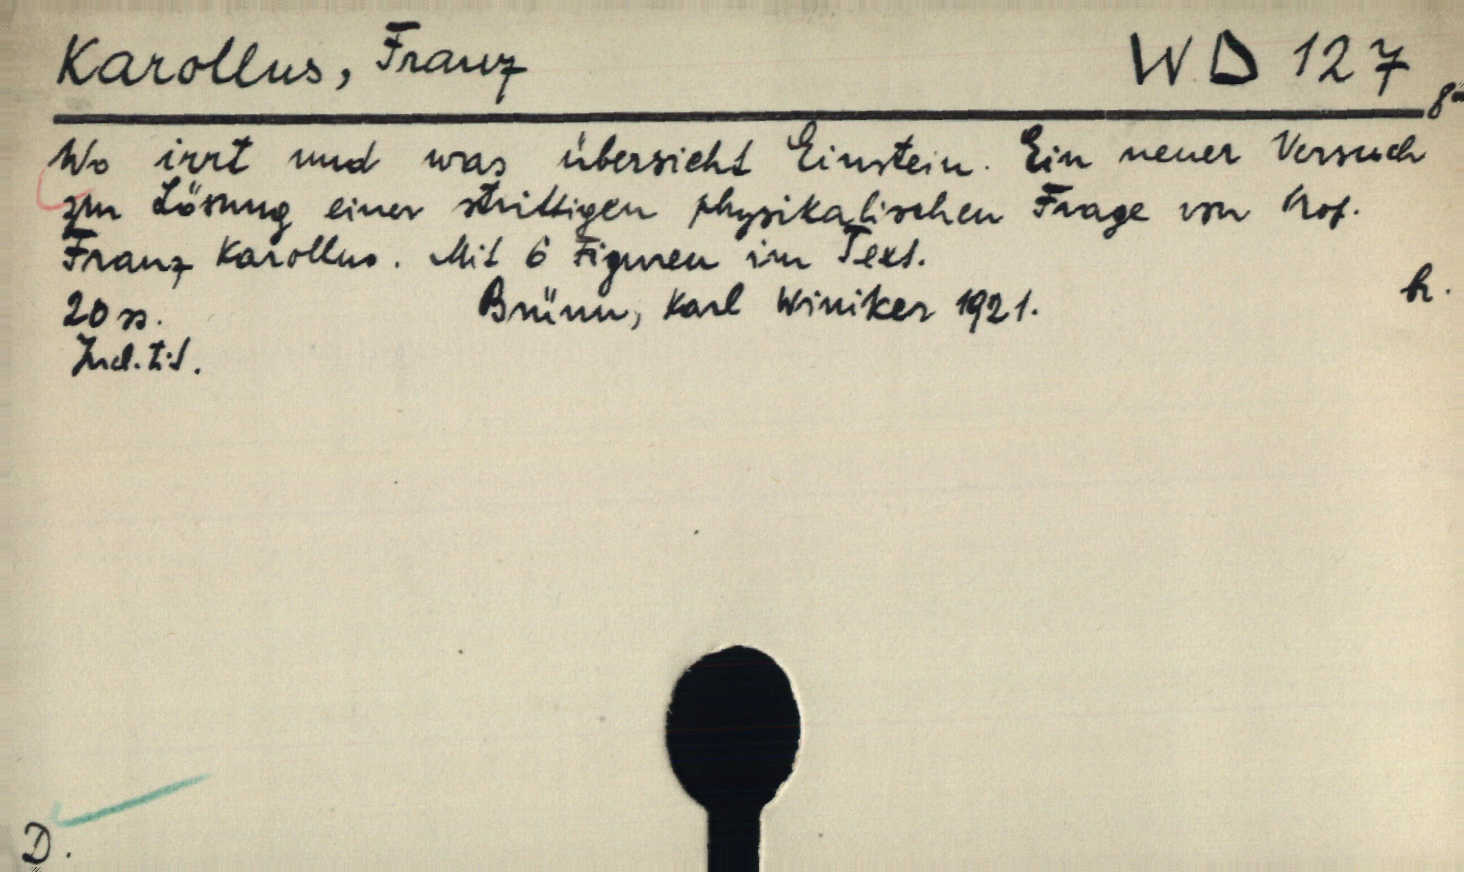 Karollus, Franz WD 127
8°
Wo irrt und was übersieht Einstein. Ein neuer Versuch
zur Lösung einer strittigen physikalischen Frage von Prof.
Franz Karollus. Mit 6 Figuren im Text.
20 ss. Brünn, Karl Winiker 1921. br.
Ind. tit.
D.